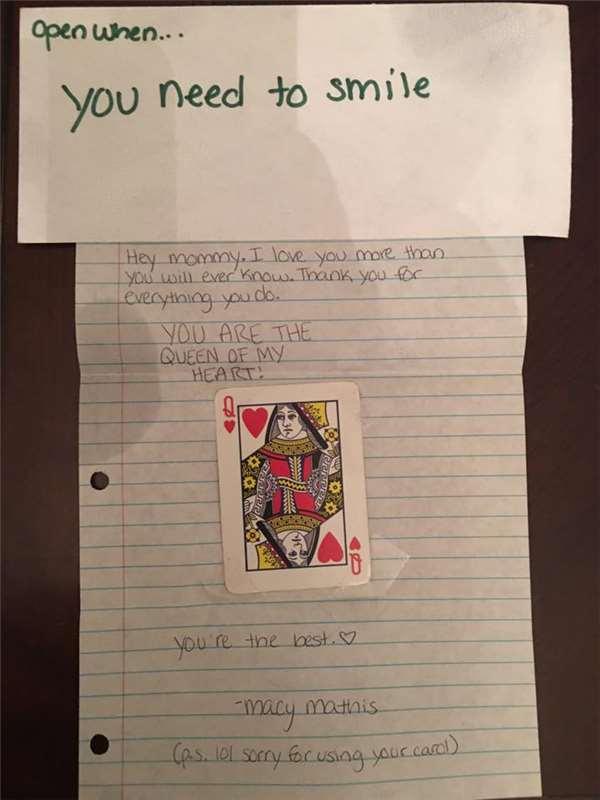 open when...
you need to smile
Hey mommy. I love you more than
you will ever know. Thank you for
everything you do.
YOU ARE THE
QUEEN OF MY
HEART!
Q
Q
you're the best. ♡
-macy mathis
(p.s. lol sorry for using your card)